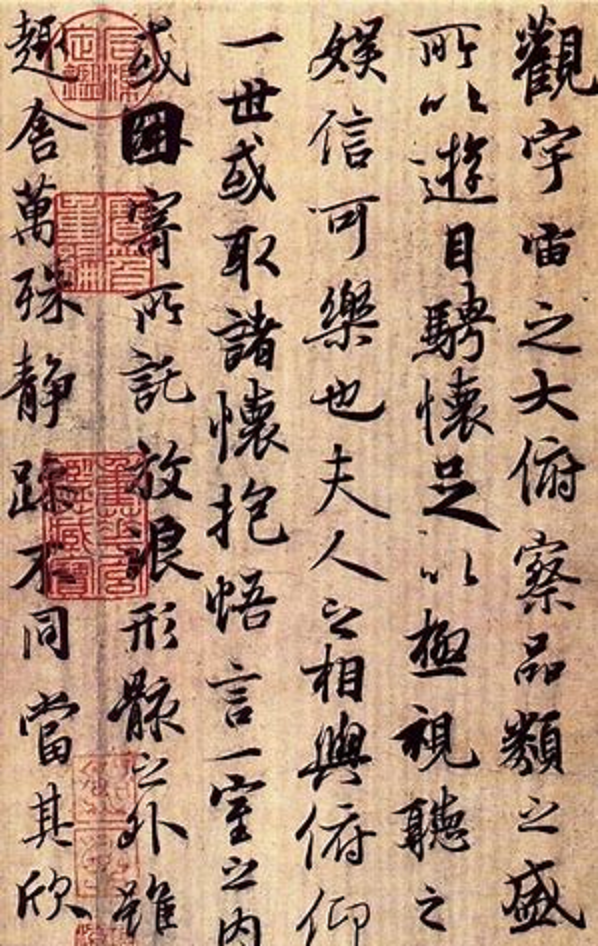 觀宇宙之大俯察品類之盛
所以遊目騁懷足以極視聽之
娛信可樂也夫人之相與俯仰
一世或取諸懷抱悟言一室之內
或因寄所託放浪形骸之外雖
趣舍萬殊静躁不同當其欣